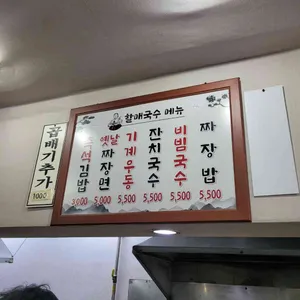 곱배기추가
1000
할매국수 메뉴
즉석김밥
옛날짜장면
기계우동
잔치국수
비빔국수
짜장밥
3,000 5,000 5,500 5,500 5,500 5,500